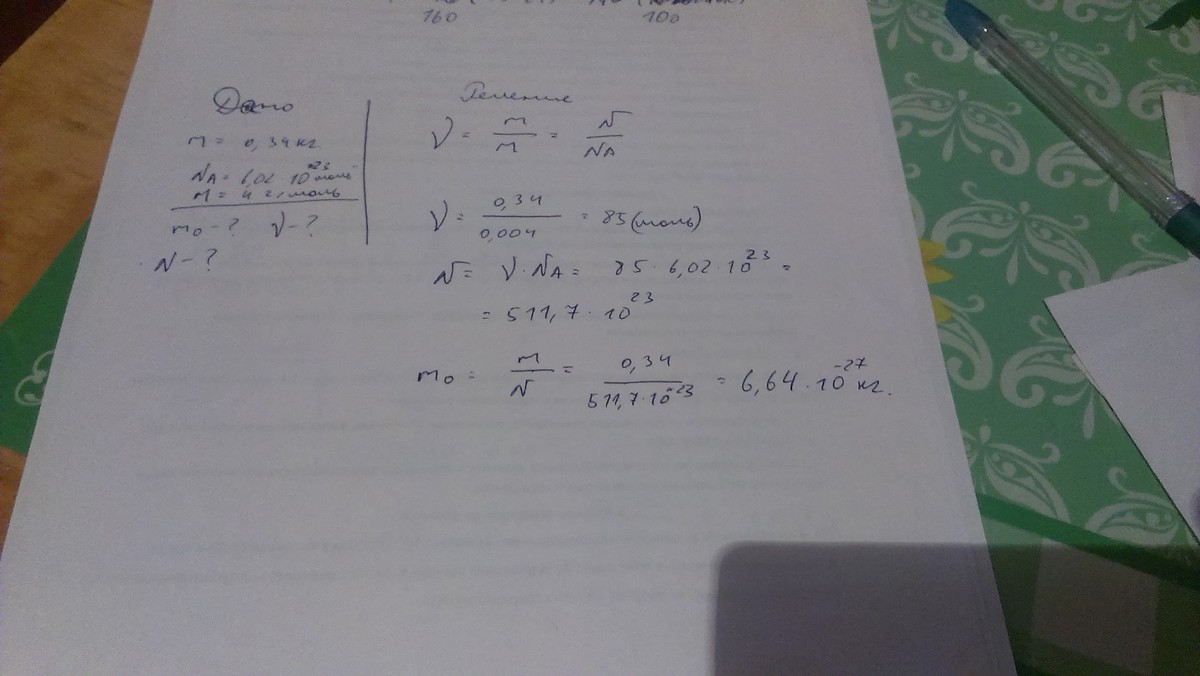 160 100
Дано
m = 0,34 кг
NA = 6,02 · 10²³ моль⁻
M = 4 г/моль
m₀ - ? ν - ?
N - ?
Решение
ν = m/M = N/NA
ν = 0,34/0,004 = 85 (моль)
N = ν · NA = 85 · 6,02 · 10²³ =
= 511,7 · 10²³
m₀ = m/N = 0,34/511,7·10²³ = 6,64 · 10⁻²⁷ кг.